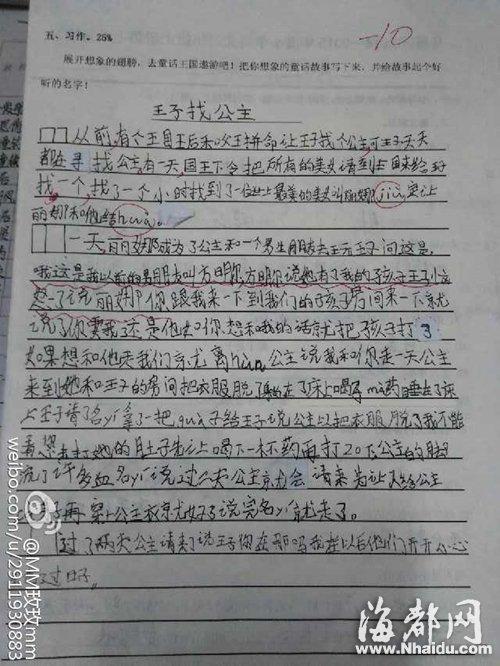 五、习作。25% -10
展开想象的翅膀，去童话王国遨游吧！把你想象的童话故事写下来，并给故事起个好
听的名字！
王子找公主
从前，有个王国王后和国王拼命让王子找个公主可王子天天
都在寻找公主，有一天，国王下令把所有的美女请到
找一个，找了一个小时找到了位最美的美女叫丽娜，jiù要让
丽娜和他结hūn。
一天，丽娜成为了公主和一个男生朋友去玩王子问这是，
哦这是我以前的男朋友叫方明，方明说她有了我的孩子王子
说丽娜你跟我来一下到我们的房间来一下就
说了你要我这是他如你想和我的话就把孩子打了
如果想和他天我们就离hūn公主说我和你走一天公主
来到她和王子的房间把衣服脱了躺在了床上喝了mí药睡在了床
上王子请名yī拿了一把给王子说公主以把衣服脱了我不能
看去打她的肚子先让喝下一杯药再打20下公主的脚
流了许多血名yī说过公主就会请来给公主
再穿上公主衣就好了说完名yī就走了。
过了两天公主请来了说王子你在那吗我在以后他们开开心心
过日子。
weibo.com/u/2911930883
@MM玫玫mm
海都网
www.Nhaidu.com